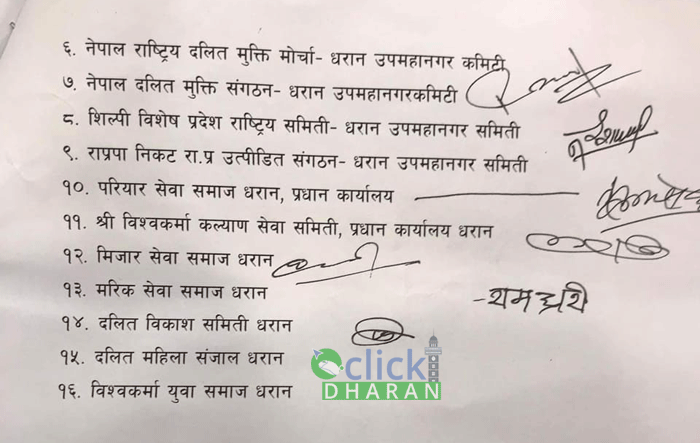 ६. नेपाल राष्ट्रिय दलित मुक्ति मोर्चा- धरान उपमहानगर कमिटी
७. नेपाल दलित मुक्ति संगठन- धरान उपमहानगरकमिटी
८. शिल्पी विशेष प्रदेश राष्ट्रिय समिती- धरान उपमहानगर समिती
९. राप्रपा निकट रा.प्र उत्पीडित संगठन- धरान उपमहानगर समिती
१०. परियार सेवा समाज धरान, प्रधान कार्यालय
११. श्री विश्वकर्मा कल्याण सेवा समिती, प्रधान कार्यालय धरान
१२. मिजार सेवा समाज धरान
१३. मरिक सेवा समाज धरान
१४. दलित विकाश समिती धरान
१५. दलित महिला संजाल धरान
१६. विश्वकर्मा युवा समाज धरान
click
DHARAN